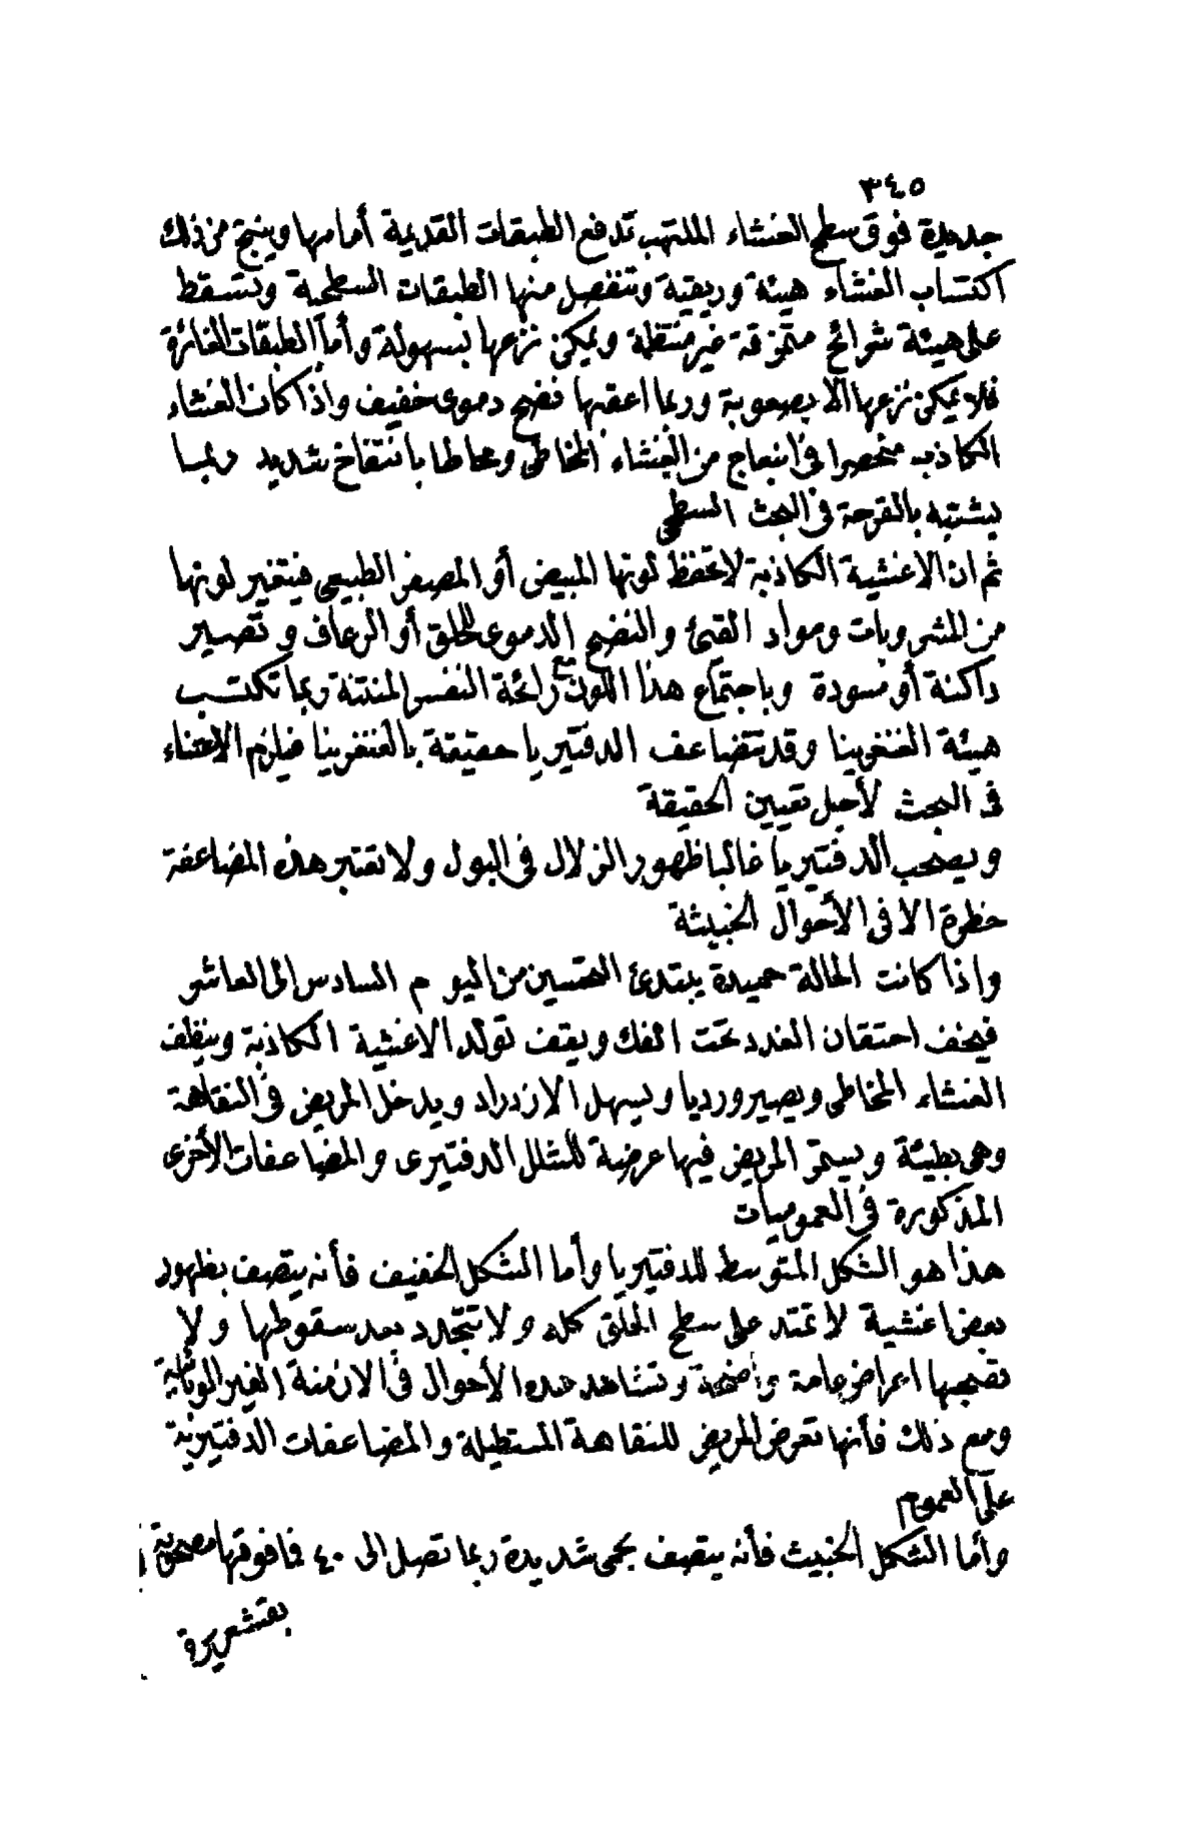 ٣٤٥
جديدة فوق سطح الغشاء الملتهب تدفع الطبقات القديمة أمامها وينتج من ذلك
اكتساب الغشاء هيئة وريقية وتنفصل منها الطبقات السطحية وتتسقط
على هيئة شرائح متمزقة غير منتظمة ويمكن نزعها بسهولة وأما الطبقات الغائرة
فلا يمكن نزعها الا بصعوبة وربما اعقبها نضح دموى خفيف واذا كان الغشاء
الكاذب منحصرا فى انبعاج من الغشاء المخاطى ومحاطا بانتفاخ شديد ربما
يشتبه بالقرحة فى البحث السطحى
ثم ان الاغشية الكاذبة لا تحفظ لونها المبيض أو المصفر الطبيعى فيتغير لونها
من المشروبات ومواد القئ والنضح الدموى للحلق أو الرعاف وتصير
داكنة أو مسودة وباجتماع هذا اللون مع رائحة النفس المنتنة ربما تكتسب
هيئة الغنغرينا وقد تتضاعف الدفتيريا حقيقة بالغنغرينا فيلزم الاعتناء
فى البحث لأجل تعيين الحقيقة
ويصحب الدفتيريا غالبا ظهور الزلال فى البول ولا تعتبر هذه المضاعفة
خطرة الا فى الأحوال الخبيثة
واذا كانت الحالة حميدة يبتدئ التحسين من اليو م السادس الى العاشر
فيخف احتقان الغدد تحت الفك ويقف تولد الاغشية الكاذبة وينظف
الغشاء المخاطى ويصير ورديا ويسهل الازدراد ويدخل المريض فى النقاهة
وهى بطيئة ويستمر المريض فيها عرضة للشلل الدفتيرى والمضاعفات الأخرى
المذكورة فى العموميات
هذا هو الشكل المتوسط للدفتيريا وأما الشكل الخفيف فأنه يتصف بظهور
بعض اغشية لا تمتد على سطح الحلق كله ولا تتجدد بعد سقوطها ولا
تصحبها اعراض عامة واضحة وتشاهد هذه الأحوال فى الازمنة الغير الوبائية
ومع ذلك فأنها تعرض المريض للنقاهة المستطيلة والمضاعفات الدفتيرية
على العموم
وأما الشكل الخبيث فأنه يتصف بحمى شديدة ربما تصل الى ٤٠ فما فوقها مصحوبة
بقشعريرة